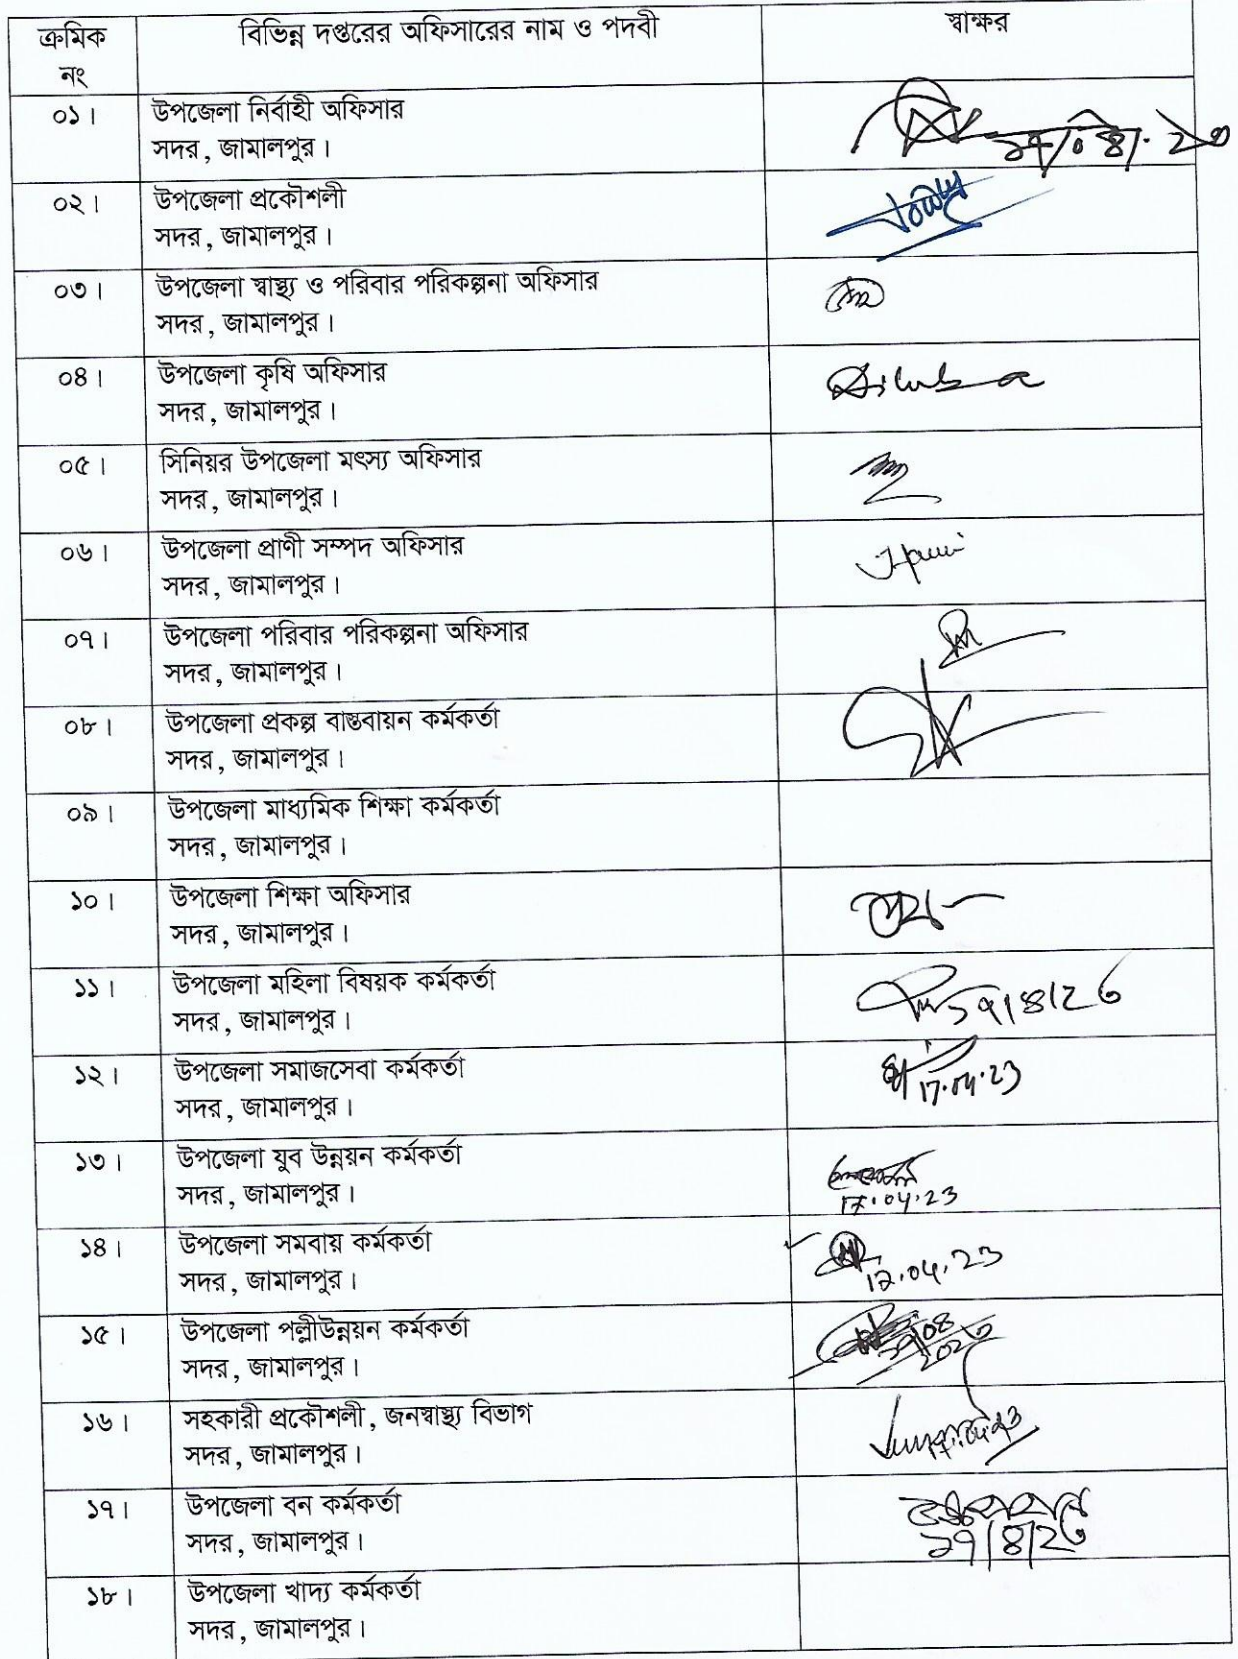 ক্রমিক নং | বিভিন্ন দপ্তরের অফিসারের নাম ও পদবী | স্বাক্ষর
০১। উপজেলা নির্বাহী অফিসার
সদর, জামালপুর। ১৭/০৪/২৩
০২। উপজেলা প্রকৌশলী
সদর, জামালপুর।
০৩। উপজেলা স্বাস্থ্য ও পরিবার পরিকল্পনা অফিসার
সদর, জামালপুর।
০৪। উপজেলা কৃষি অফিসার
সদর, জামালপুর।
০৫। সিনিয়র উপজেলা মৎস্য অফিসার
সদর, জামালপুর।
০৬। উপজেলা প্রাণী সম্পদ অফিসার
সদর, জামালপুর।
০৭। উপজেলা পরিবার পরিকল্পনা অফিসার
সদর, জামালপুর।
০৮। উপজেলা প্রকল্প বাস্তবায়ন কর্মকর্তা
সদর, জামালপুর।
০৯। উপজেলা মাধ্যমিক শিক্ষা কর্মকর্তা
সদর, জামালপুর।
১০। উপজেলা শিক্ষা অফিসার
সদর, জামালপুর।
১১। উপজেলা মহিলা বিষয়ক কর্মকর্তা
সদর, জামালপুর। ১৭/৪/২৩
১২। উপজেলা সমাজসেবা কর্মকর্তা
সদর, জামালপুর। 17.04.23
১৩। উপজেলা যুব উন্নয়ন কর্মকর্তা
সদর, জামালপুর। 17.04.23
১৪। উপজেলা সমবায় কর্মকর্তা
সদর, জামালপুর। 17.04.23
১৫। উপজেলা পল্লীউন্নয়ন কর্মকর্তা
সদর, জামালপুর।
১৬। সহকারী প্রকৌশলী, জনস্বাস্থ্য বিভাগ
সদর, জামালপুর।
১৭। উপজেলা বন কর্মকর্তা
সদর, জামালপুর। ১৭/৪/২৩
১৮। উপজেলা খাদ্য কর্মকর্তা
সদর, জামালপুর।